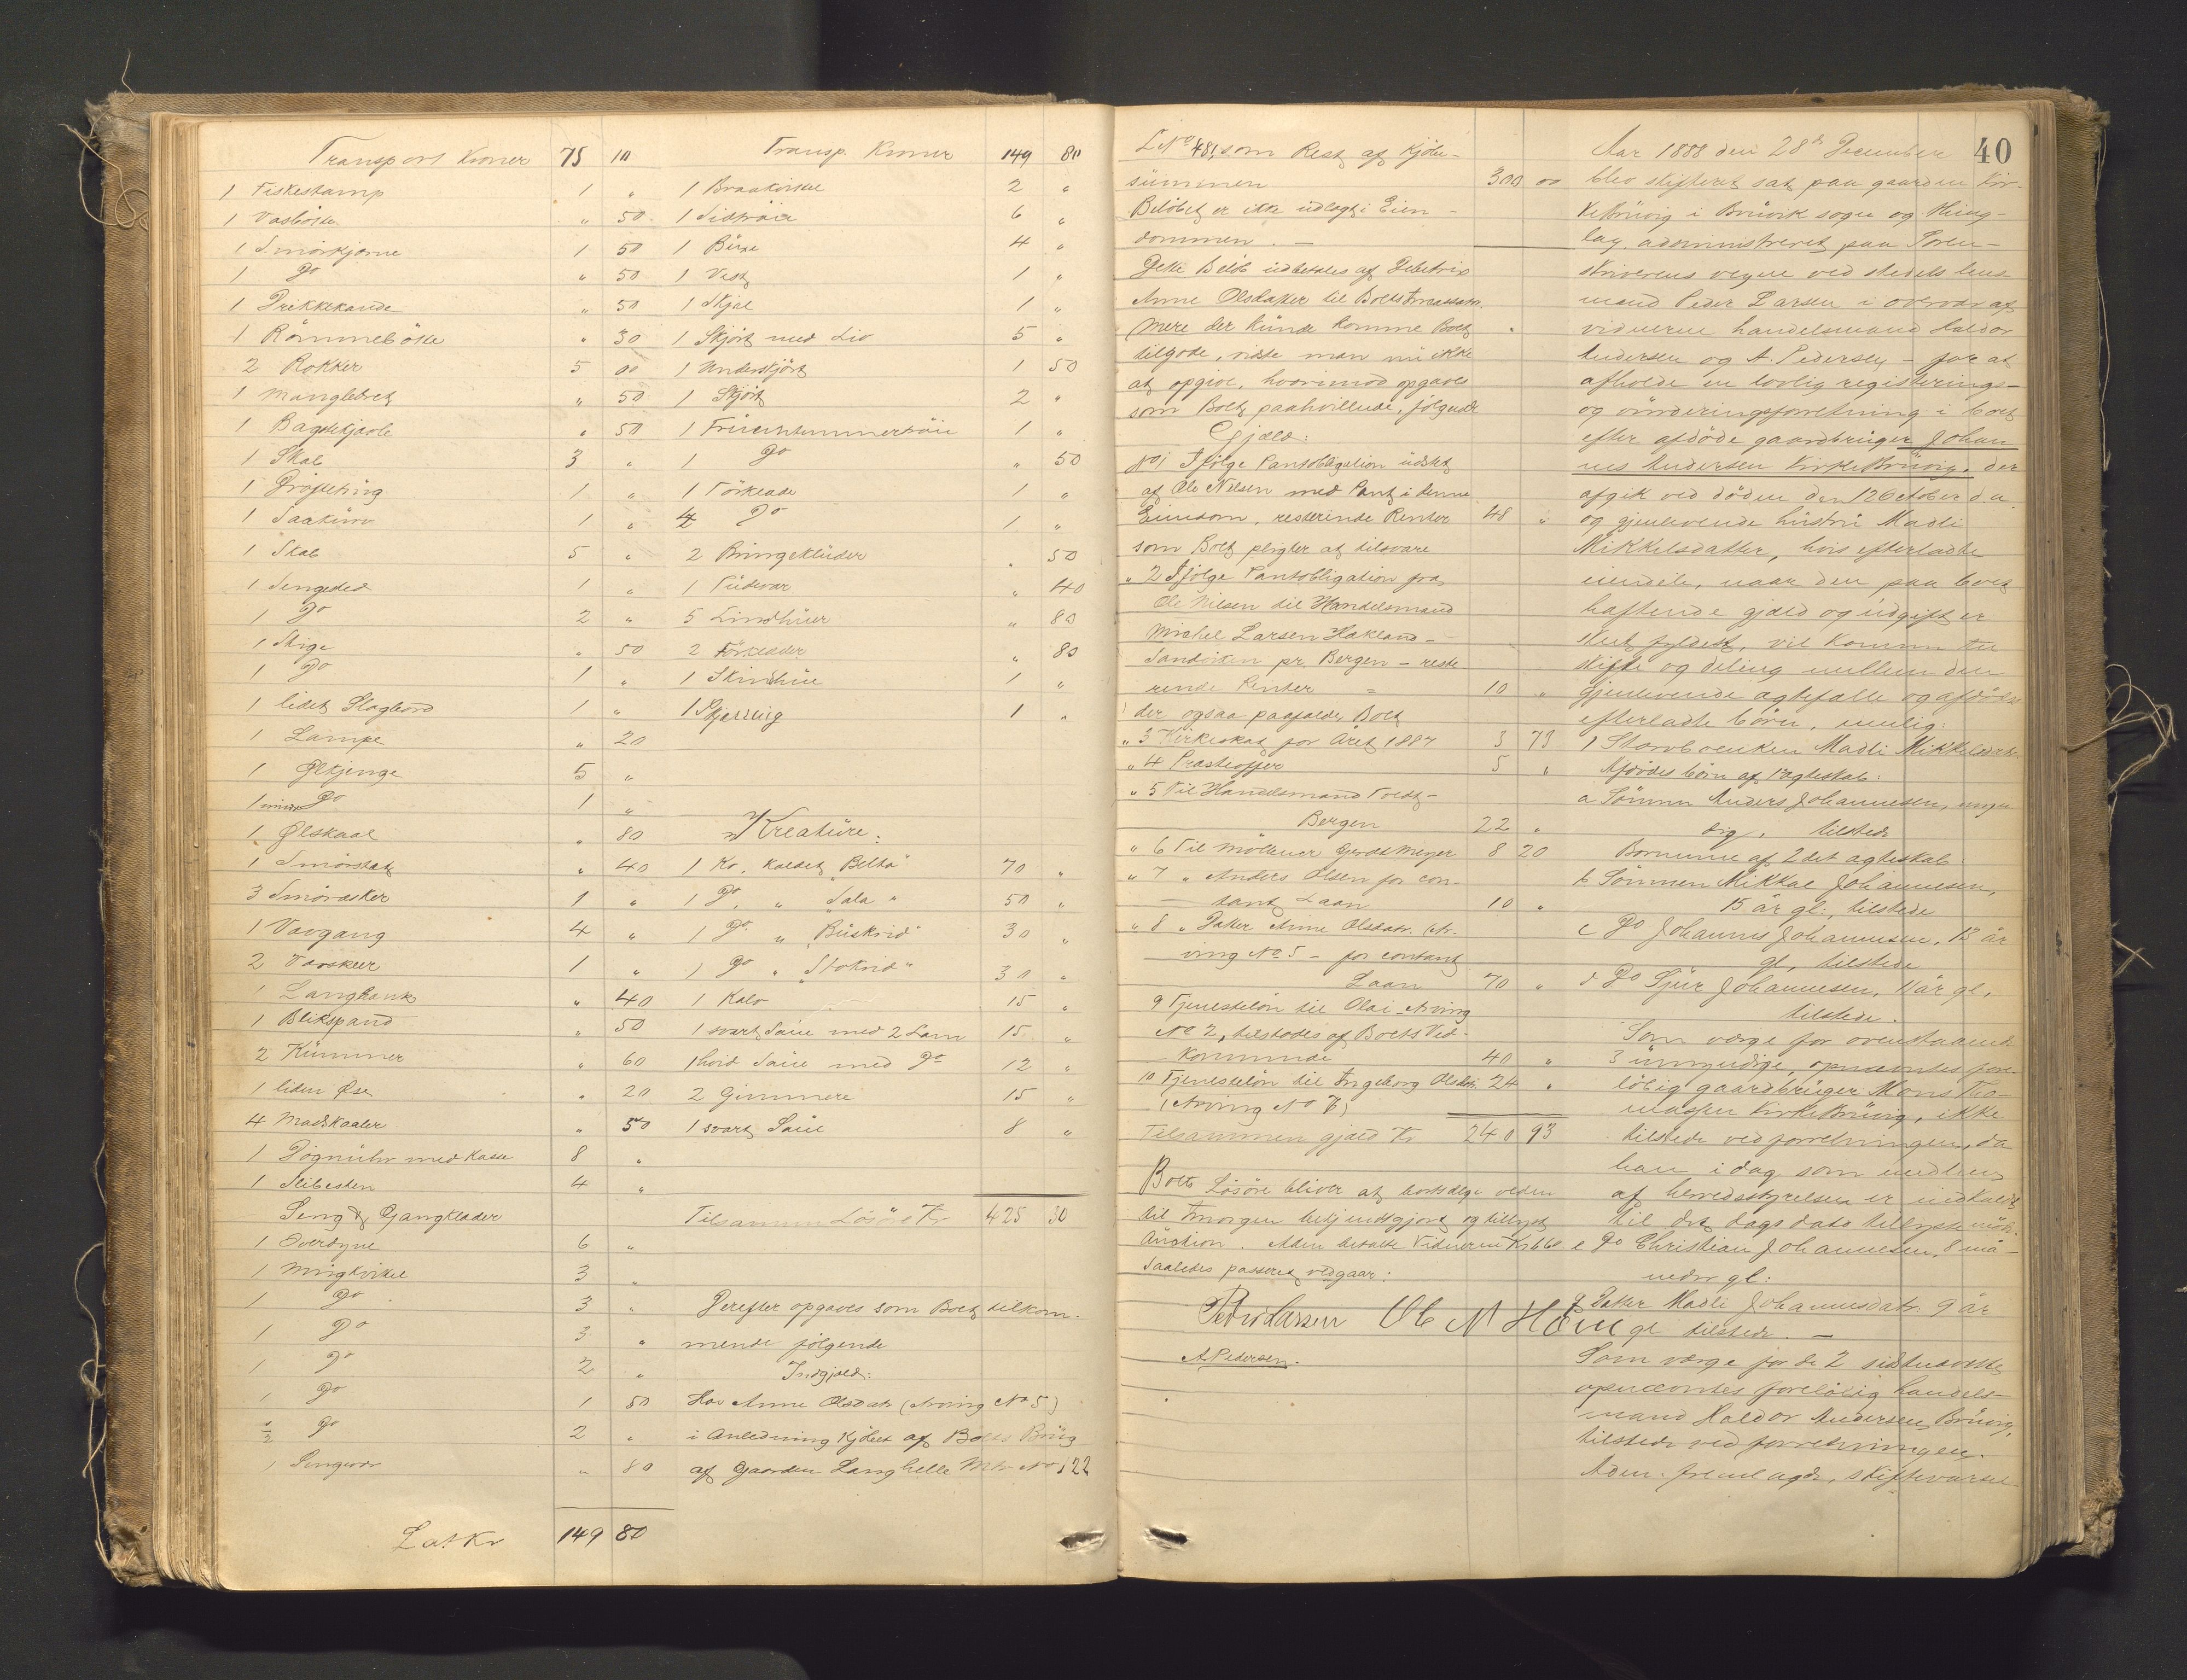 Transport Kroner 75 10
1 Fiskestamp 1 "
1 Vasbötte " 50
1 Smörkjerne 1 50
1 Do " 50
1 Drikkekande " 50
1 Römmebötte " 30
2 Rokker 5 00
1 Manglebret " 50
1 Bagstekjævle " 50
1 Skab 3 "
1 1 "
1 Saakurv 1 "
1 Skab 5 "
1 Sengested 1 "
1 Do 2 "
1 Stige " 50
1 Do 1 "
1 lidet Slagbord 1 "
1 Lampe " 20
1 Ølkjenge 5 "
1 mindr Do 1 "
1 Ølskaal " 80
1 " 40
3 Smöræsker 1 "
1 Vævgang 4 "
2 Vævskeer 1 "
1 Langbænk " 40
1 Blikspand " 50
2 Kummer " 60
1 liden Øse " 20
4 Madskaaler " 50
1 Døgnuhr med Kasse 8 "
1 Slibesten 4 "
Seng & Gangklæder
1 Overdyne 6 "
1 3 "
1 Do 3 "
1 Do 3 "
1 Do 2 "
1 Do 1 50
1/2 Do 2 "
1 " 80
Lat Kr 149 80
Transp. Kroner 149 80
1 2 "
1 6 "
1 Buxe 4 "
1 Vest 1 "
1 Skjal 1 "
1 Skjört med Liv 5 "
1 Underskjört 1 50
1 Skjört 2 "
1 Fruentimmertröie 1 "
1 Do " 50
1 Törklæde 1 "
4 Do 1 "
2 Bringekluder " 50
1 Pudevar " 40
5 Linshuer " 80
2 " 80
1 Skindhue 1 "
1 1 "
Kreature:
1 Ko, kaldet "Belta" 70 "
1 Do. " Sala " 50 "
1 Do " "Buskrid" 30 "
1 Do " " 30 "
1 Kalv 15 "
1 svart Saue med 2 Lam 15 "
1 hvid Saue med Do 12 "
2 Gimmere 15 "
1 svart Saue 8 "
Tilsammen Lösöre Kr 425 30
Derefter opgaves som Boet tilkom-
mende følgende
Indgjæld:
Hos Anne Olsdatr (Arving No 5)
i Anledning Kjöbet af Boets Brug
af Gaarden Langhelle Mtr. No 122
L No 481, som Rest af Kjöbe-
summen 300 00
Belöbet er ikke udlagt i Eien-
dommen. —
Dette Belöb udbetales af Debitrix
Anne Olsdatter til Boets massatr.
Mere der kunde komme Boet
tilgode, vidste man nu ikke
at opgive, hvorimod opgaves
som Boet paahvilende, følgende
Gjæld:
No 1 Ifölge Pantobligation udstet
af Ole Nilsen med Pant i denne
Eiendom, resterende Renter 48 "
som Boet pligter at tilsvare
" 2 Ifölge Pantobligation fra
Ole Nilsen til Handelsmand
Michel Larsen Hakland –
Sandviken pr. Bergen – reste
rende Renter = 10 "
der ogsaa paafalde Boet
" 3 Kirkeskat for Aret 1887 3 73
" 4 Præsteoffer 5 "
" 5 Til Handelsmand –
Bergen 22 "
" 6 Til Möllener Gerdt Meyer 8 20
" 7 " Anders Olsen for con-
tant Laan 10 "
" 8 " Datter Anne Olsdatr. (Ar-
ving No 5 – for contant
Laan 70 "
9 Tjenestelön til Olai – Arving
No 2, tilstodes af Boets Ved-
kommende 40 "
10 Tjenestelön til Ingeborg Olsdtr. 24 "
(Arving No 7)
Tilsammen gjæld Kr 240 93
Boets Lösöre bliver at bortsælge ved den
til Imorgen bekjendtgjort og tillyst
Auction. Aden betalte Vidnerne Kr 1 60
Saaledes passeret vedgaar:
Peder Larsen Ole N Houe
A Pedersen.
40
Aar 1888 den 28de December
blev skifteret sat paa gaarden Kir-
kebruvig i Bruvik sogn og thing-
lag. administreret paa Soren-
skriverens vegne ved stedets lens-
mand Peder Larsen i overvær af
vidnerne handelsmand Haldor
Andersen og A. Pedersen – for at
afholde en lovlig registrerings-
og vurderingsforretning i boet
efter afdöde gaardbruger Johan
nes Andersen Kirkebruvig, der
afgik ved döden den 12 October d.a.
og gjenlevende hustru Madli
Mikkelsdatter, hvis efterladte
eiendele, naar den paa boet
haftende gjæld og udgift er
sket fyldest, vil komme til
skifte og deling mellem den
gjenlevende ægtefælle og afdödes
efterladte börn, nemlig:
1 Stervboenken Madli Mikkelsdatr.
Afdödes börn af 1 ægteskab:
a Sönnen Anders Johannesen, myn
dig, tilstede
Bornene af 2det ægteskab:
b Sönnen Mikkal Johannesen,
15 år gl:, tilstede
c Do Johannes Johannesen, 13 år
gl, tilstede
d Do Sjur Johannesen, 11 år gl,
tilstede.
Som værge for ovenstaaende
3 umyndige, opnævntes fore-
löbig gaardbruger Mons Tho-
massen Kirkebruvig, ikke
tilstede ved forretningen, da
han i dag som medlem
af herredsstyrelsen er indkaldt
til det dags dato tillyste möde.
e Do Christian Johannesen, 8 må-
neder gl:
f Datter Madli Johannesdatr. 9 år
gl tilstede. —
Som værge for de 2 sidstnævnte
opnævntes forelöbig handels-
mand Haldor Andersen Bruvig,
tilstede ved forretningen.
Aden. fremlagde, skiftevarsel